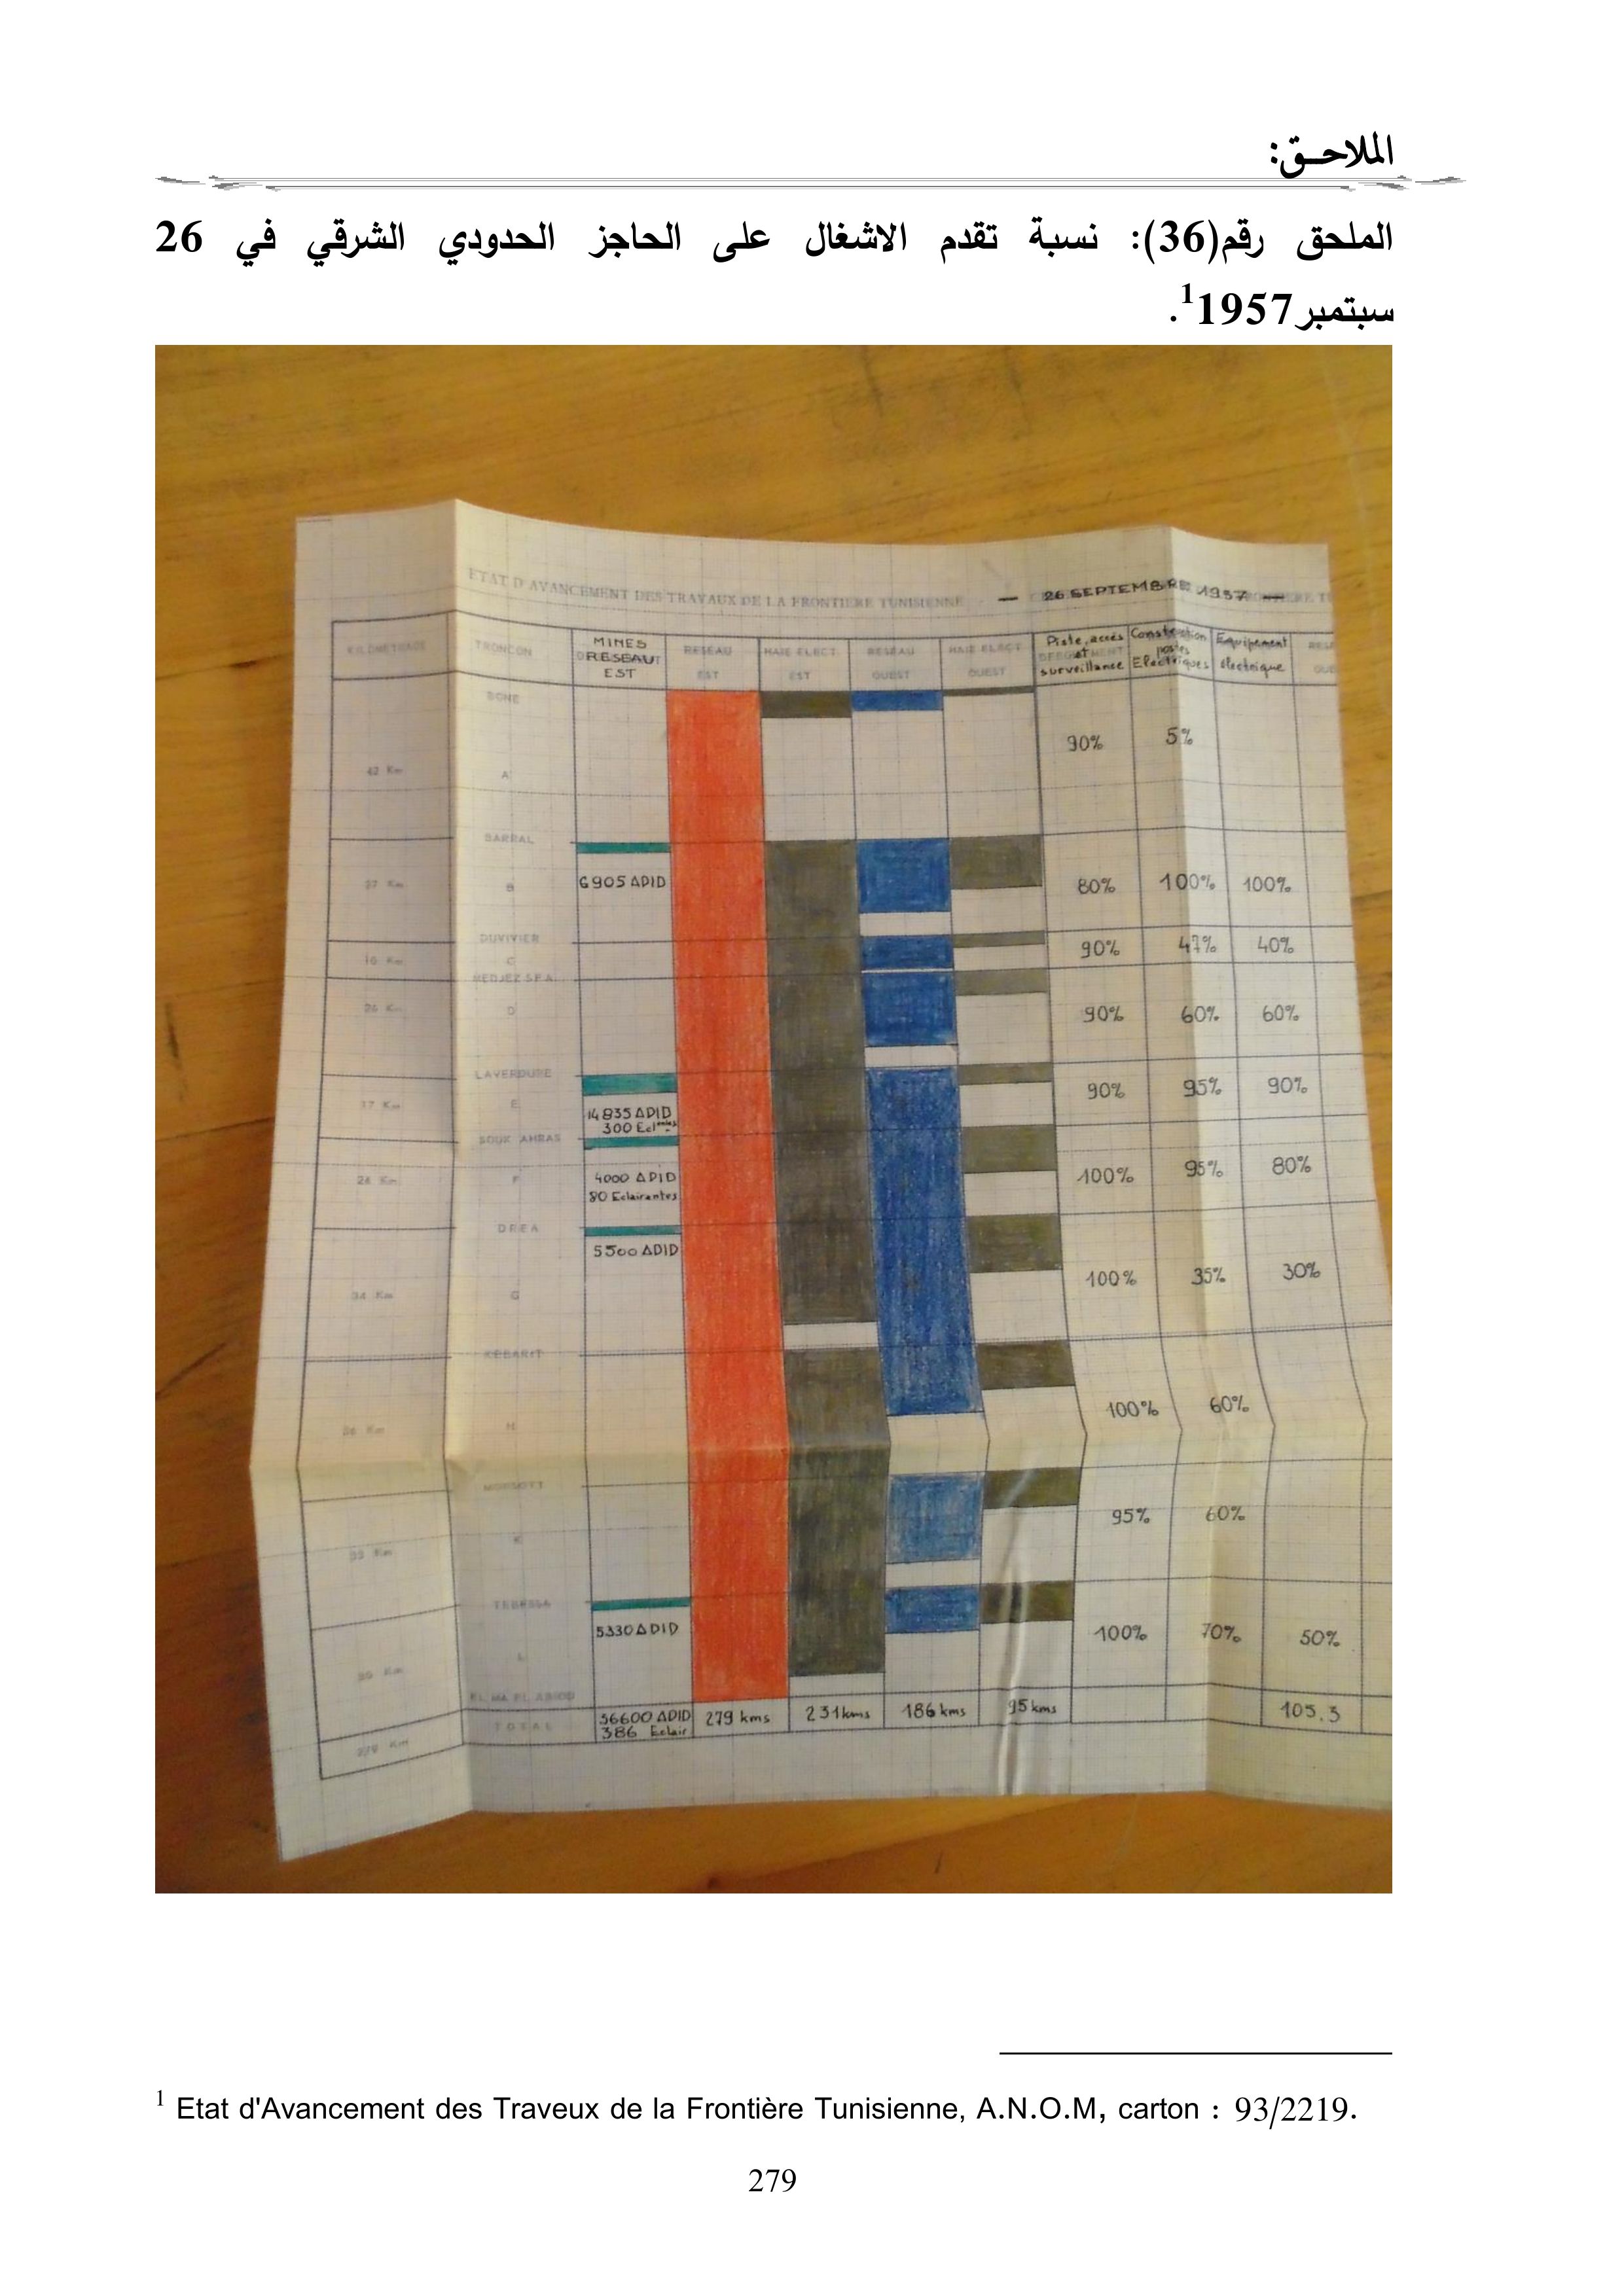 الملاحـق:
الملحق رقم(36): نسبة تقدم الاشغال على الحاجز الحدودي الشرقي في 26
سبتمبر1957¹.
ETAT D'AVANCEMENT DES TRAVAUX DE LA FRONTIERE TUNISIENNE — 26 SEPTEMBRE 1957 —
KILOMETRAGE TRONCON MINES RESEAU EST RESEAU EST HAIE ELECT EST RESEAU OUEST HAIE ELECT OUEST Piste, accés et surveillance Construction postes Electriques Equipement électrique
BONE
42 Km A 90% 5%
BARRAL
37 Km B 6905 APID 80% 100% 100%
DUVIVIER
10 Km C 90% 47% 40%
MEDJEZ SFA
26 Km D 90% 60% 60%
LAVERDURE
17 Km E 14835 APID 300 Ecl 90% 95% 90%
SOUK AHRAS
24 Km F 4000 APID 80 Eclairantes 100% 95% 80%
DREA
34 Km G 5500 APID 100% 35% 30%
KEBARIT
H 100% 60%
MORSOTT
K 95% 60%
TEBESSA
L 5330 APID 100% 70% 50%
EL MA EL ABIOD
279 Km TOTAL 36600 APID 386 Eclair 279 kms 231 kms 186 kms 95 kms 105.3
¹ Etat d'Avancement des Traveux de la Frontière Tunisienne, A.N.O.M, carton : 93/2219.
279